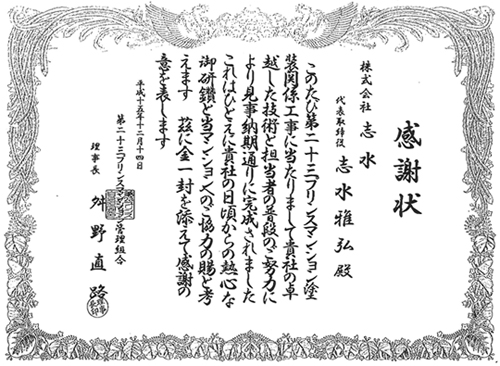 感謝状
株式会社 志水
代表取締役 志水雅弘殿
このたび第二十三プリンスマンション塗
装関係工事に当たりまして貴社の卓
越した技術と担当者の普段のご努力に
より見事納期通りに完成されました
これはひとえに貴社の日頃からの熱心な
御研鑽と当マンションへのご協力の賜と考
えます 茲に金一封を添えて感謝の
意を表します
平成十五年十二月十四日
第二十三プリンスマンション管理組合
理事長 舛野直路